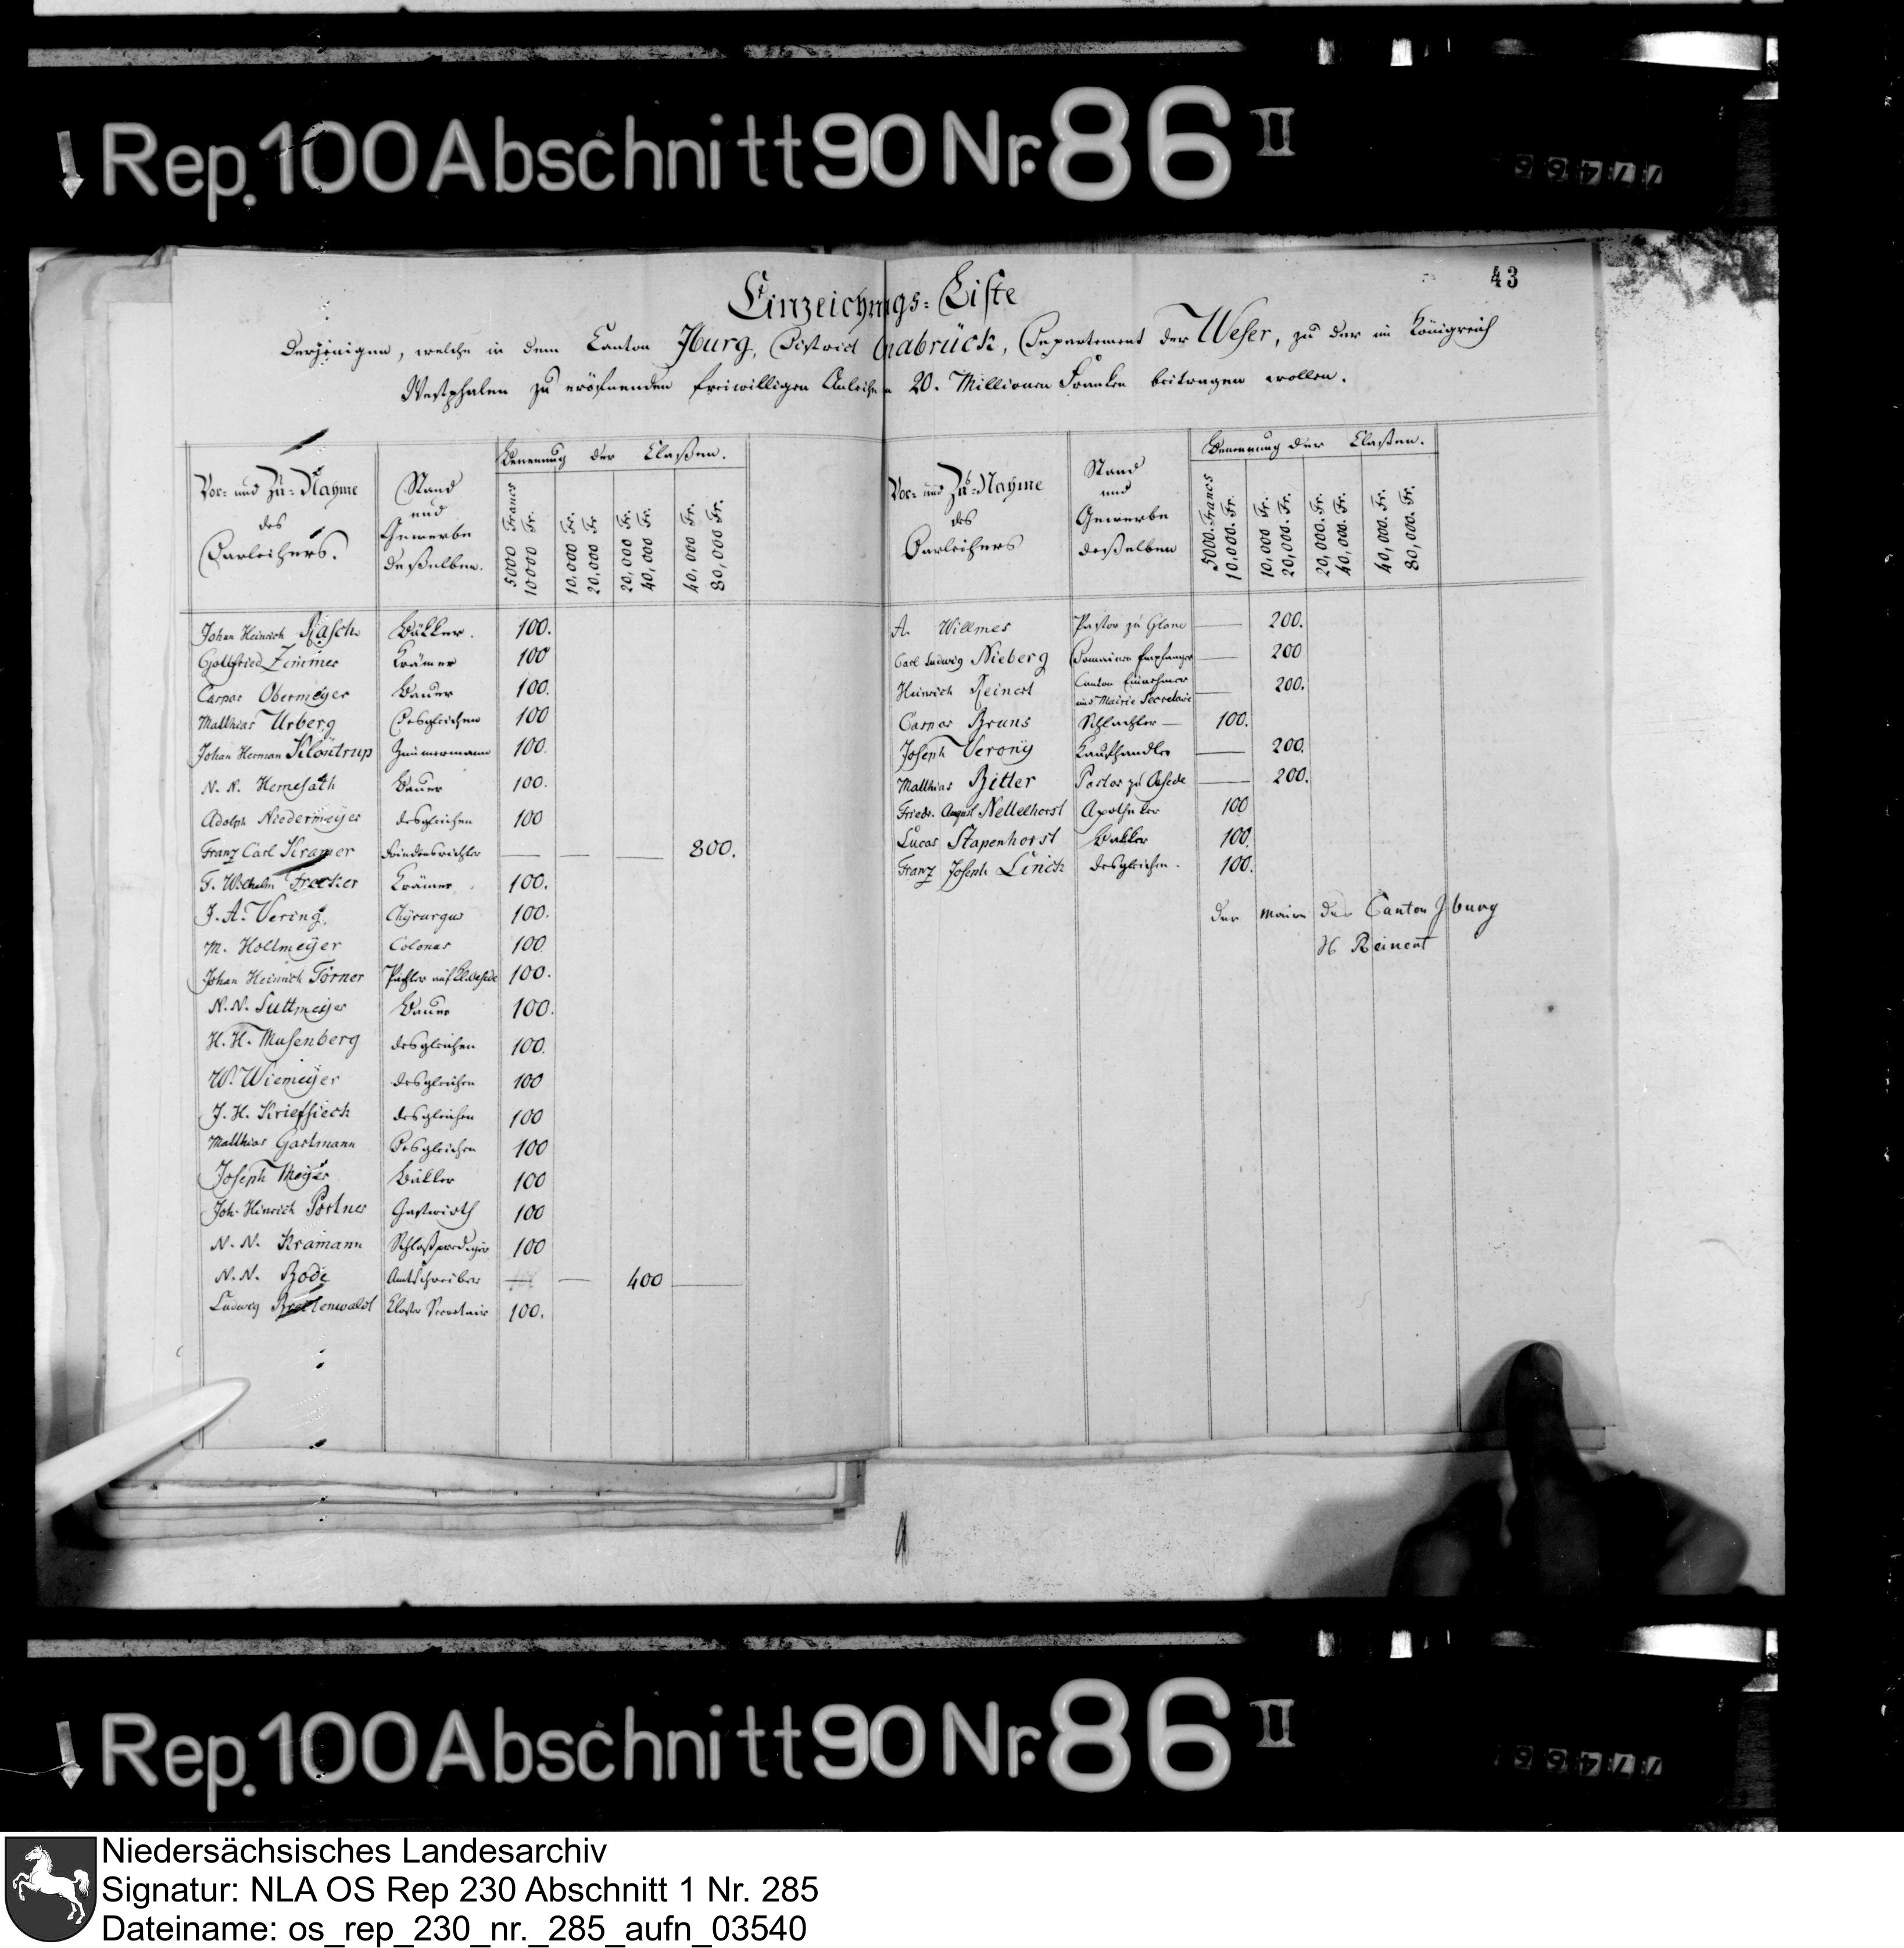 Rep. 100 Abschnitt 90 Nr. 86 II
77466
43
Einzeichnungs-Liste
Derjenigen, welche in dem Canton Jburg, District Osnabrück, Departement der Weser, zu der im Königreich
Westphalen zu eröfnenden freiwilligen Anleihe 20. Millionen Franken beitragen wollen.
Vor- und Zu-Nahme des Darleihers. Stand und Gewerbe deßelben. Benennung der Claßen.
5000 Francs 10000 Fr. 10,000 Fr. 20,000 Fr 20,000 Fr. 40,000 Fr. 40,000 Fr. 80,000 Fr.
Johan Heinrich Rasch Bäkker. 100.
Gottfried Zimmer Krämer 100
Caspar Obermeyer Bauer 100.
Matthias Urberg Desgleichen 100
Johan Herman Klöntrup Zimmermann 100.
N. N. Hemesath Bauer 100.
Adolph Niedermeyer desgleichen 100
Franz Carl Kramer Friedensrichter — — — 800.
F. Wilhelm Frecker Krämer 100.
J. A. Vering. Chyrurgus 100.
M. Hollmeyer Colonus 100
Johan Heinrich Törner Pächter auf 100.
N. N. Suttmeyer Bauer 100.
H. H. Musenberg desgleichen 100.
W. Wiemeyer desgleichen 100
J. H. Kriefsieck desgleichen 100
Matthias Gartmann Desgleichen 100
Joseph Meyer Bäkker 100
Joh. Hinrich Portner Gastwirth 100
N. N. Kramann Schloßprediger 100
N. N. Bode Amtschreiber — — 400 —
Ludwig Kloster Secretair 100.
Vor- und Zu-Nahme des Darleihers Stand und Gewerbe deßelben Benennung der Claßen.
5000. Francs 10.000. Fr. 10,000 Fr. 20,000. Fr. 20,000. Fr. 40,000. Fr. 40,000. Fr. 80,000. Fr.
A. Willmes Pastor zu Glane — 200.
Carl Ludwig Nieberg Domainen Empfanger — 200
Heinrich Reinert Canton Einnehmer und Mairie Secretair — 200.
Caspar Bruns Schlachter — 100.
Joseph Verony Kaufhandler — 200.
Matthias Bitter Pastor zu Oesede — 200.
Friedr. August Nettelhorst Apotheker 100
Lucas Stapenhorst Bakker 100.
Franz Joseph Linck desgleichen. 100.
Der Maire des Canton Jburg
H Reinert
Rep. 100 Abschnitt 90 Nr. 86 II
77466
Niedersächsisches Landesarchiv
Signatur: NLA OS Rep 230 Abschnitt 1 Nr. 285
Dateiname: os_rep_230_nr._285_aufn_03540